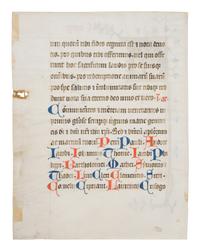 quorum tibi fides cognita est et nota deuo
pro quibus tibi offerimus uel qui tibi offe
runt hoc sacrificium laudis pro se suisq
omnibus pro redemptione animarum suarum
pro spe salutis et incolumitatis sue tibi red
dunt uota sua eterno deo uiuo et uero
Comunicantes et memoriam uenerantes in
primis gloriose semper uirginis marie genitri
dei et dni nri Sed et
ac martirum tuorum Petri Pauli Andree
Iacobi Iohannis Thome Iacobi Phi
Bartholomei Mathei Symonis
Thadei Lini Cleti Clementis Sixti
Corneli Cipriani Laurencii Grisogo